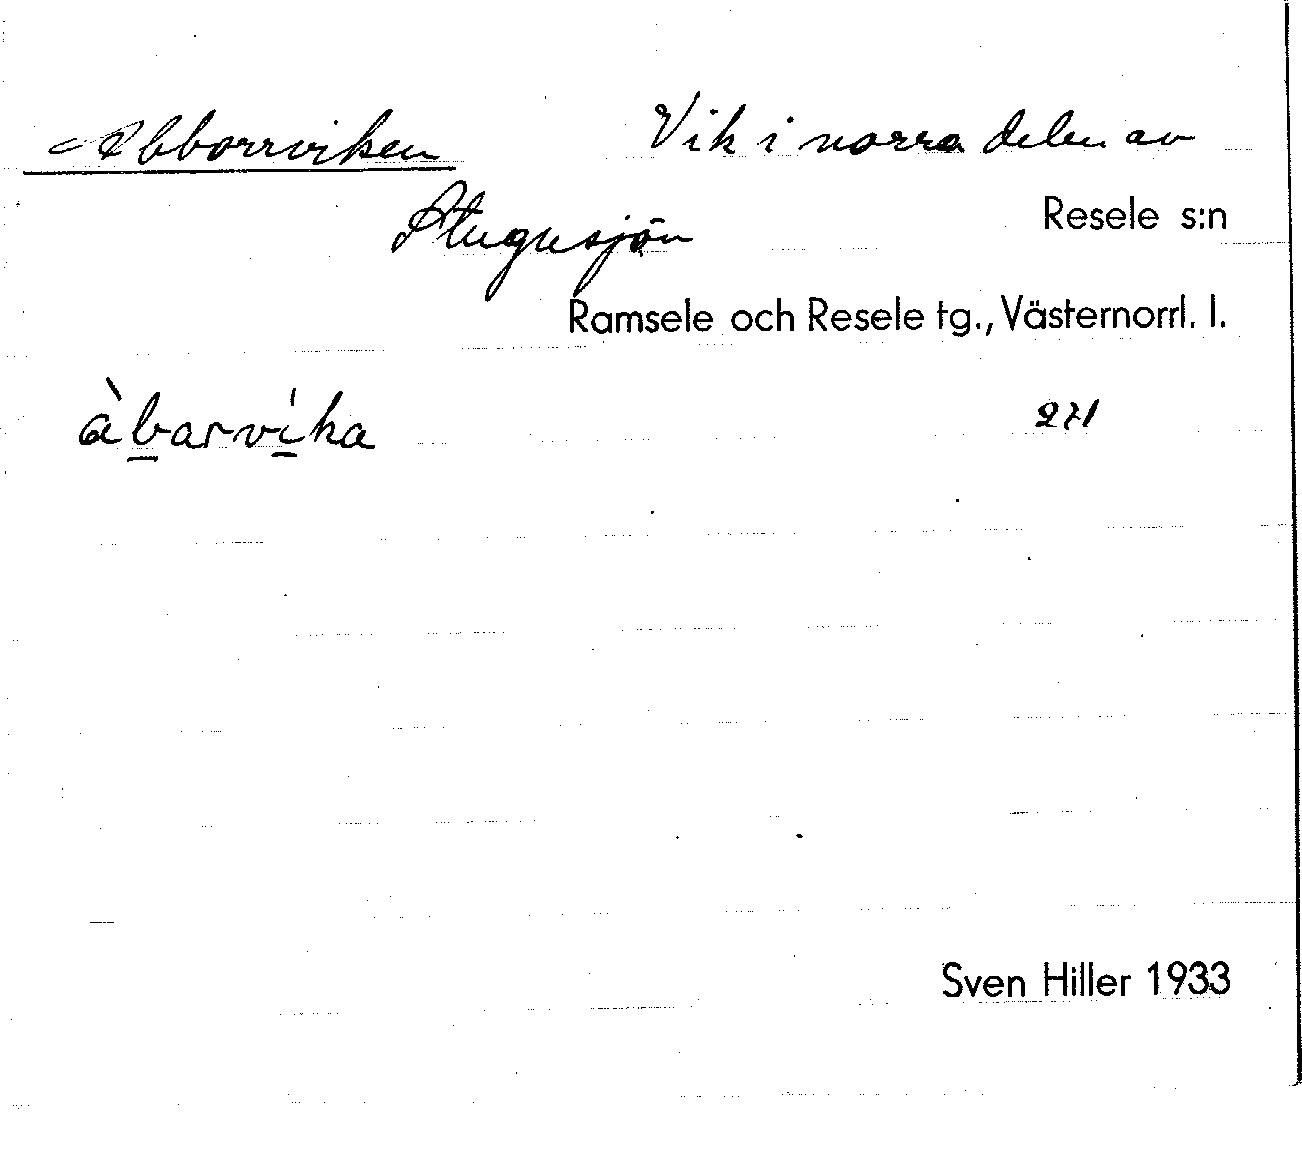 Abborrviken Vik i norra delen av
Stugusjön Resele s:n
Ramsele och Resele tg., Västernorrl. l.
àbarvi̍ka 271
Sven Hiller 1933